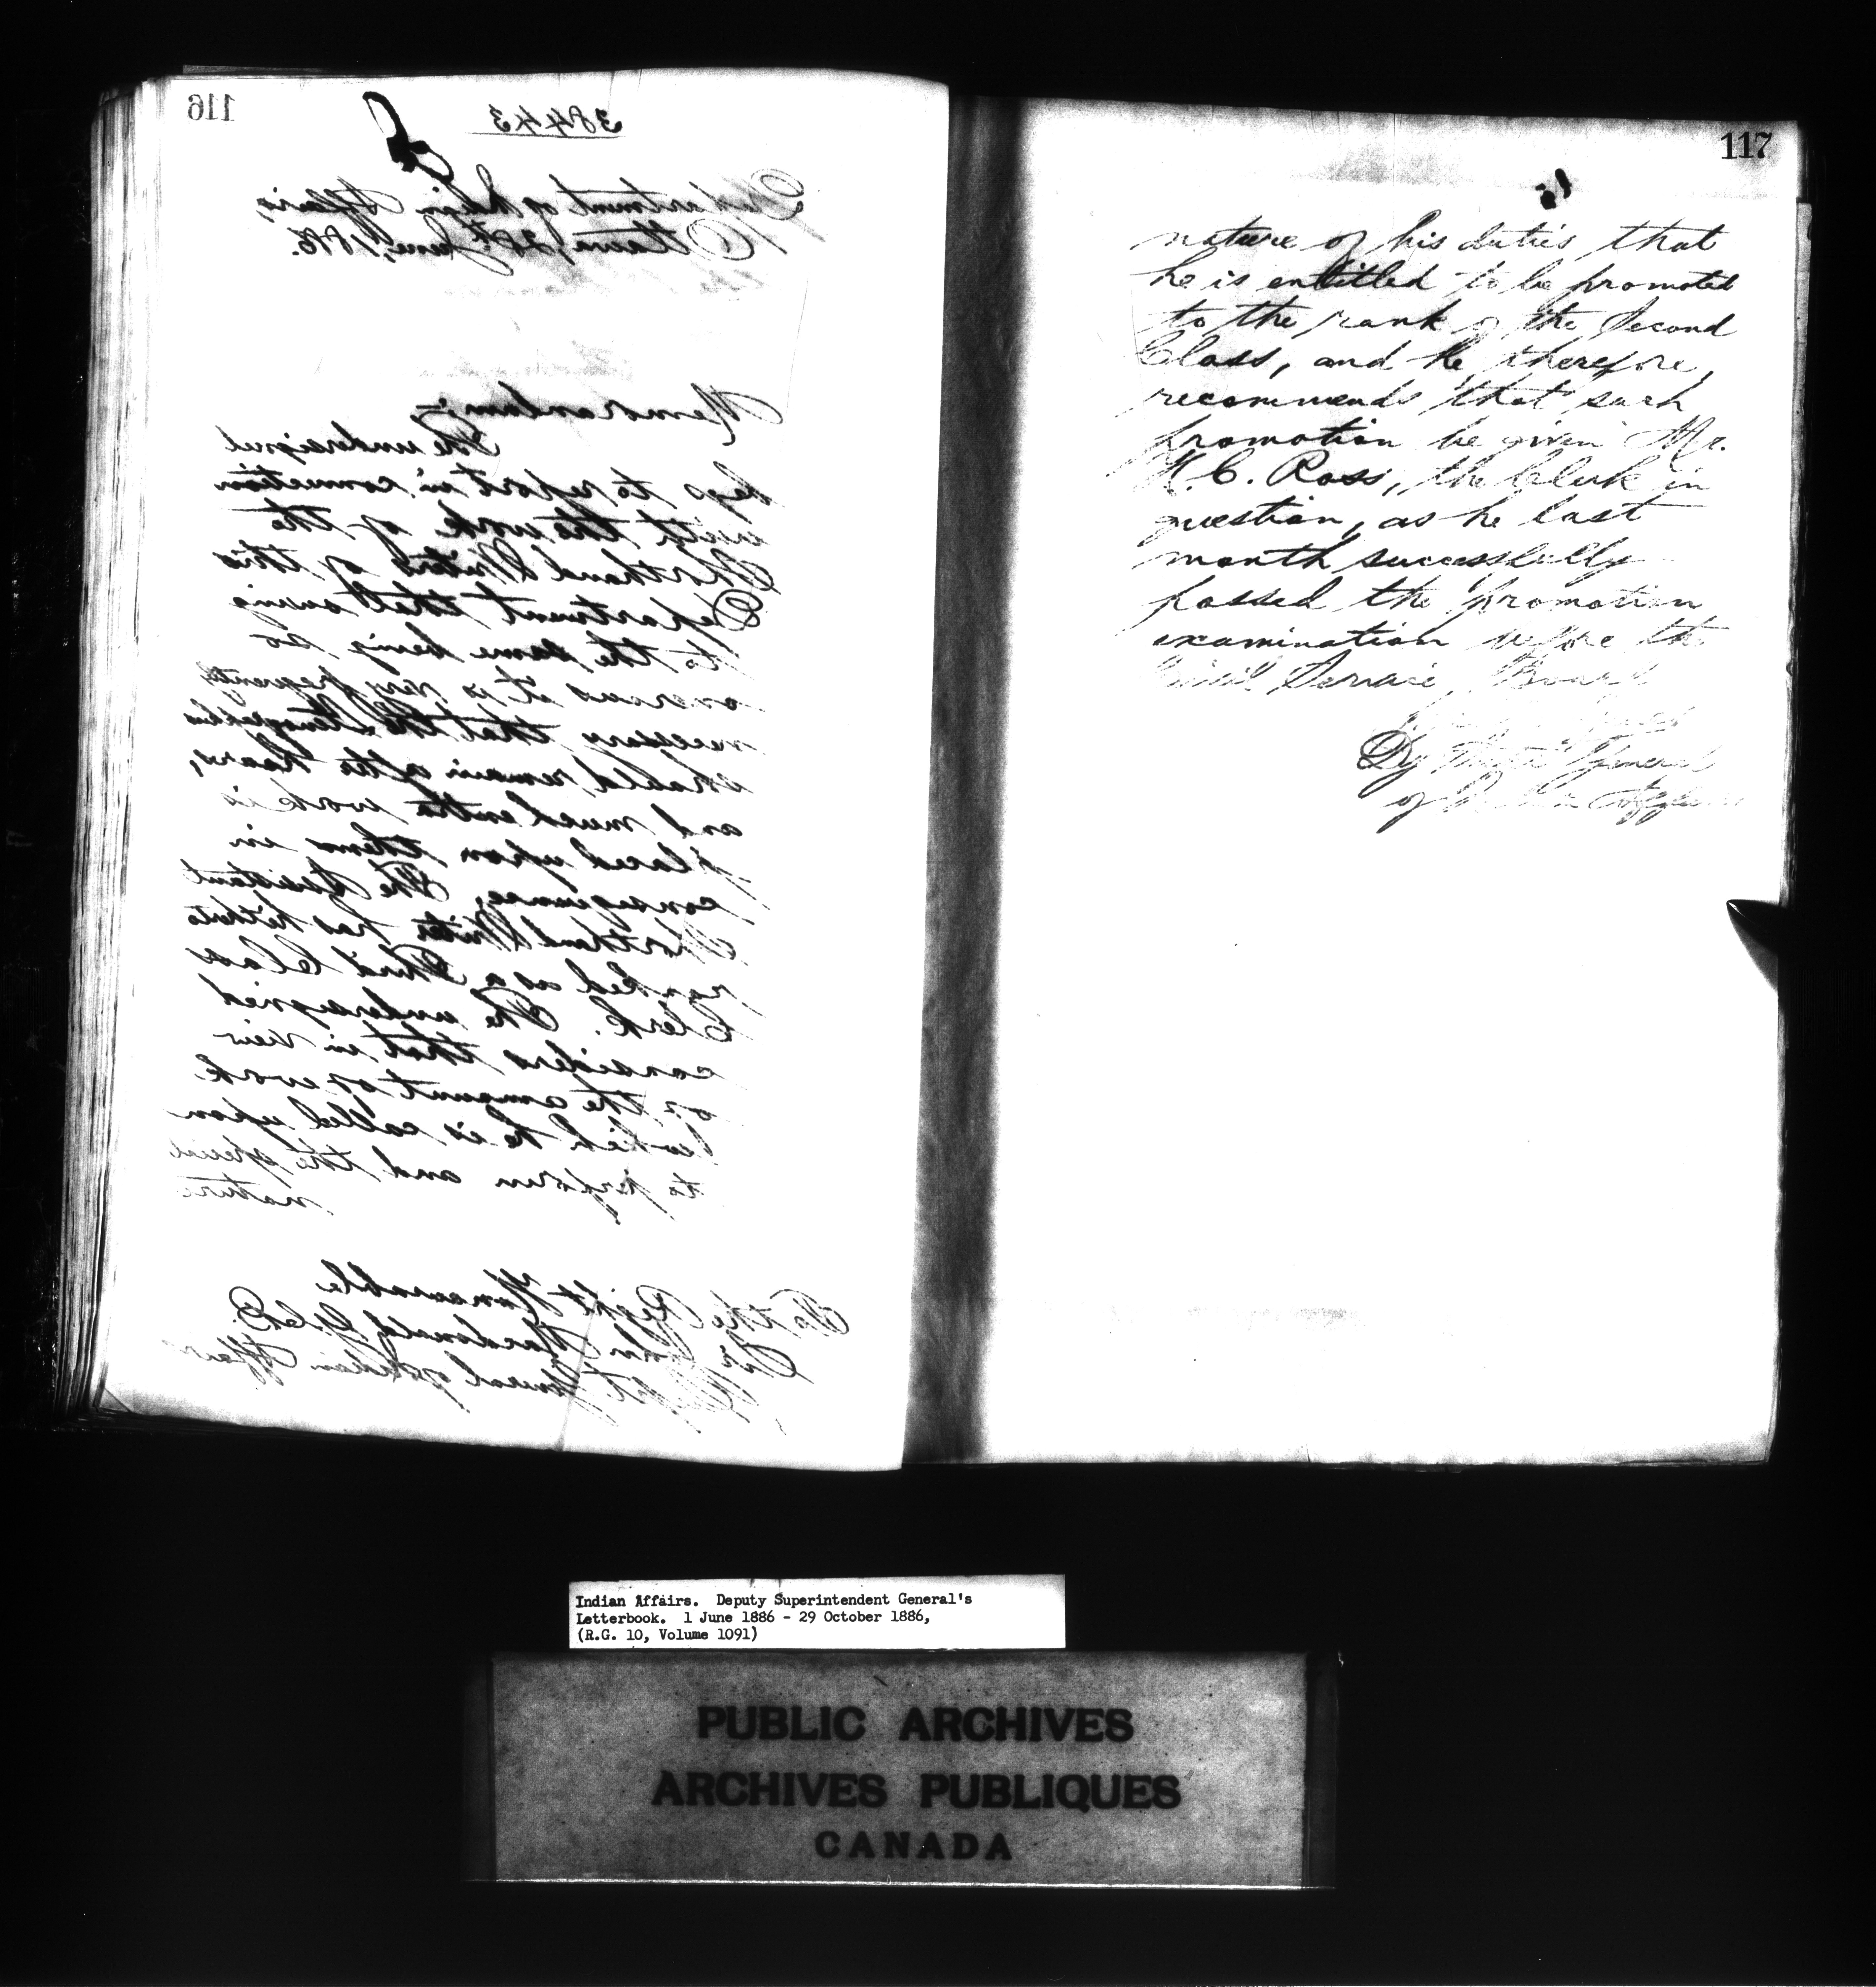 116
38443
Department of Indian Affairs,
Ottawa, 28th June, 1886.
Memorandum:-
The undersigned
begs to report in connection
with the work of the
Shorthand Writers of this
Department that owing
to the same being so
onerous it is very frequently
necessary that the Stenographers
should remain after hours,
and much extra work is
placed upon them in
consequence. The Assistant
Shorthand Writer has hitherto
ranked as a Third Class
Clerk. The undersigned
considers that in view
of the amount of work
which he is called upon
to perform and the special
nature
To the Right Honourable
Sir John Macdonald, G.C.B.
Supt General of Indian Affairs
117
nature of his duties that
he is entitled to be promoted
to the rank of the Second
Class, and he therefore,
recommends that such
promotion be given Mr.
H. C. Ross, the Clerk in
question, as he last
month successfully
passed the promotion
examination before the
Civil Service Board
Dy Supt General
of Indian Affairs
Indian Affairs. Deputy Superintendent General's
Letterbook. 1 June 1886 - 29 October 1886,
(R.G. 10, Volume 1091)
PUBLIC ARCHIVES
ARCHIVES PUBLIQUES
CANADA